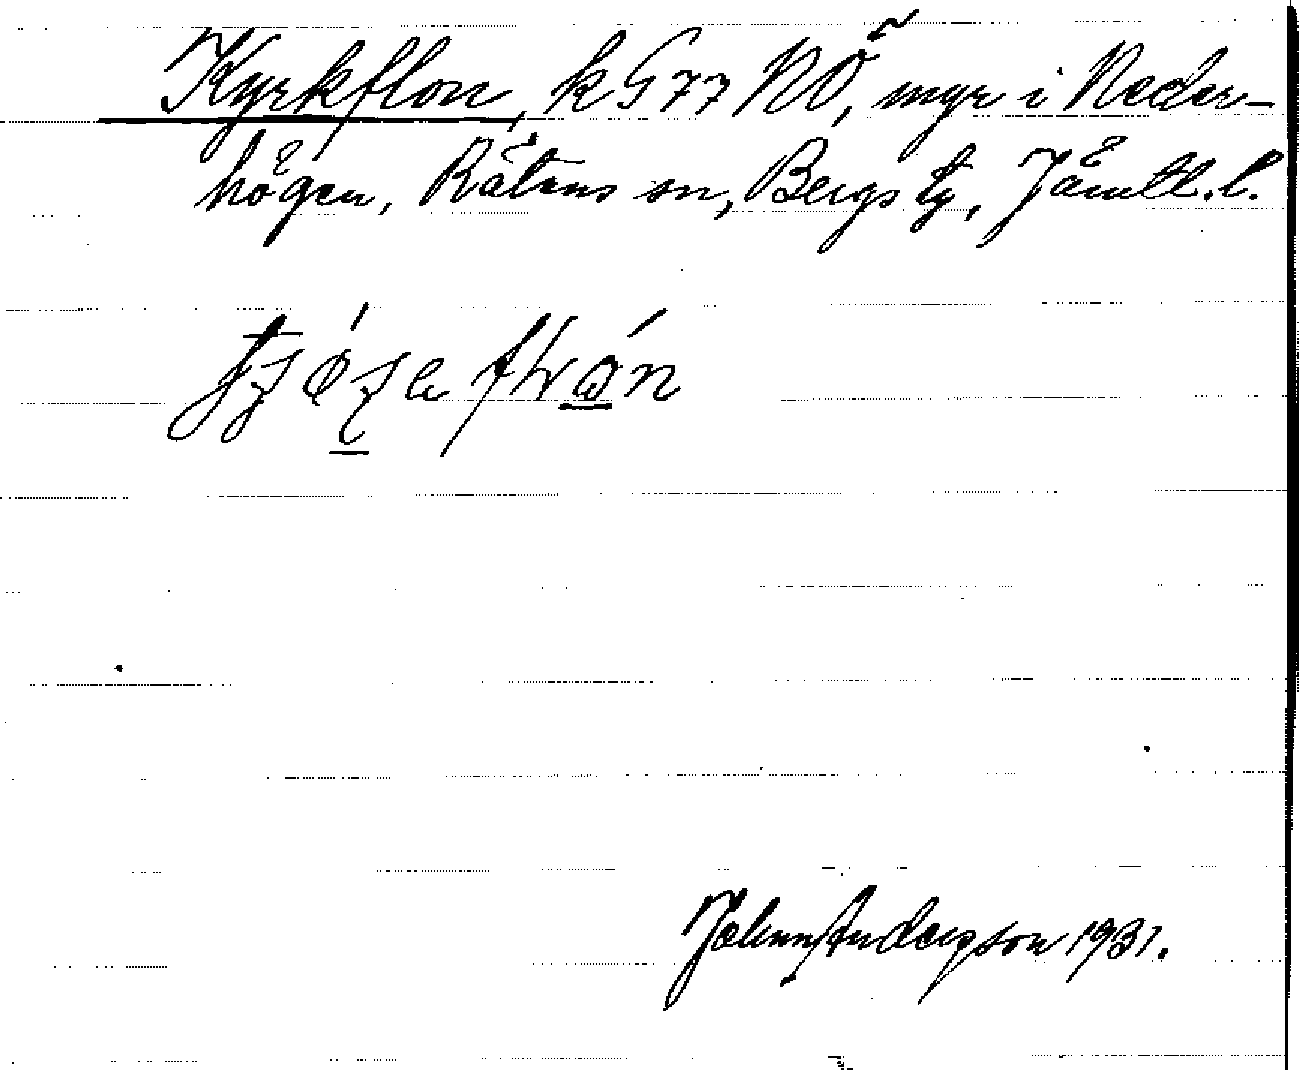 Kyrkflon, k 5 77 NÖ, myr i Neder-
högen, Rätans sn, Bergs tg, Jämtl. l.
Johan Anderson 1931.